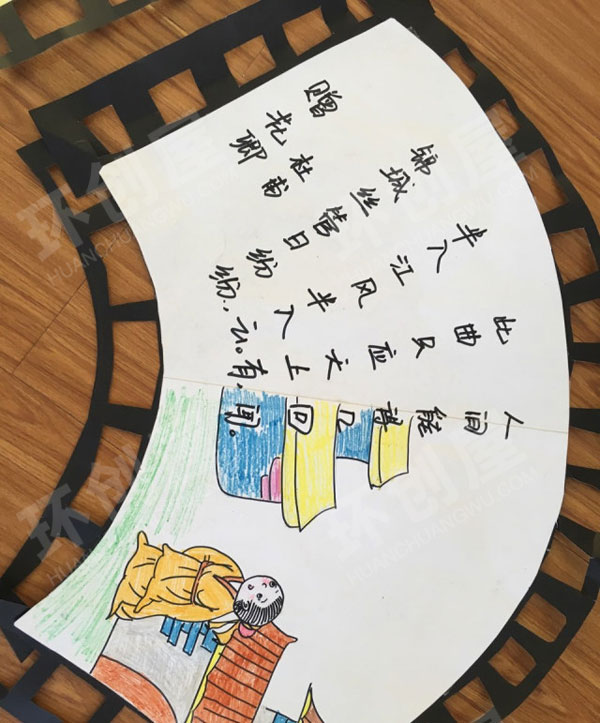 赠花卿
杜甫
锦城丝管日纷纷,
半入江风半入云。
此曲只应天上有,
人间能得几回闻。
环创屋
HUANCHUANGWU.COM
环创屋
HUANCHUANGWU.COM
环创屋
HUANCHUANGWU.COM
环创屋
HUANCHUANGWU.COM